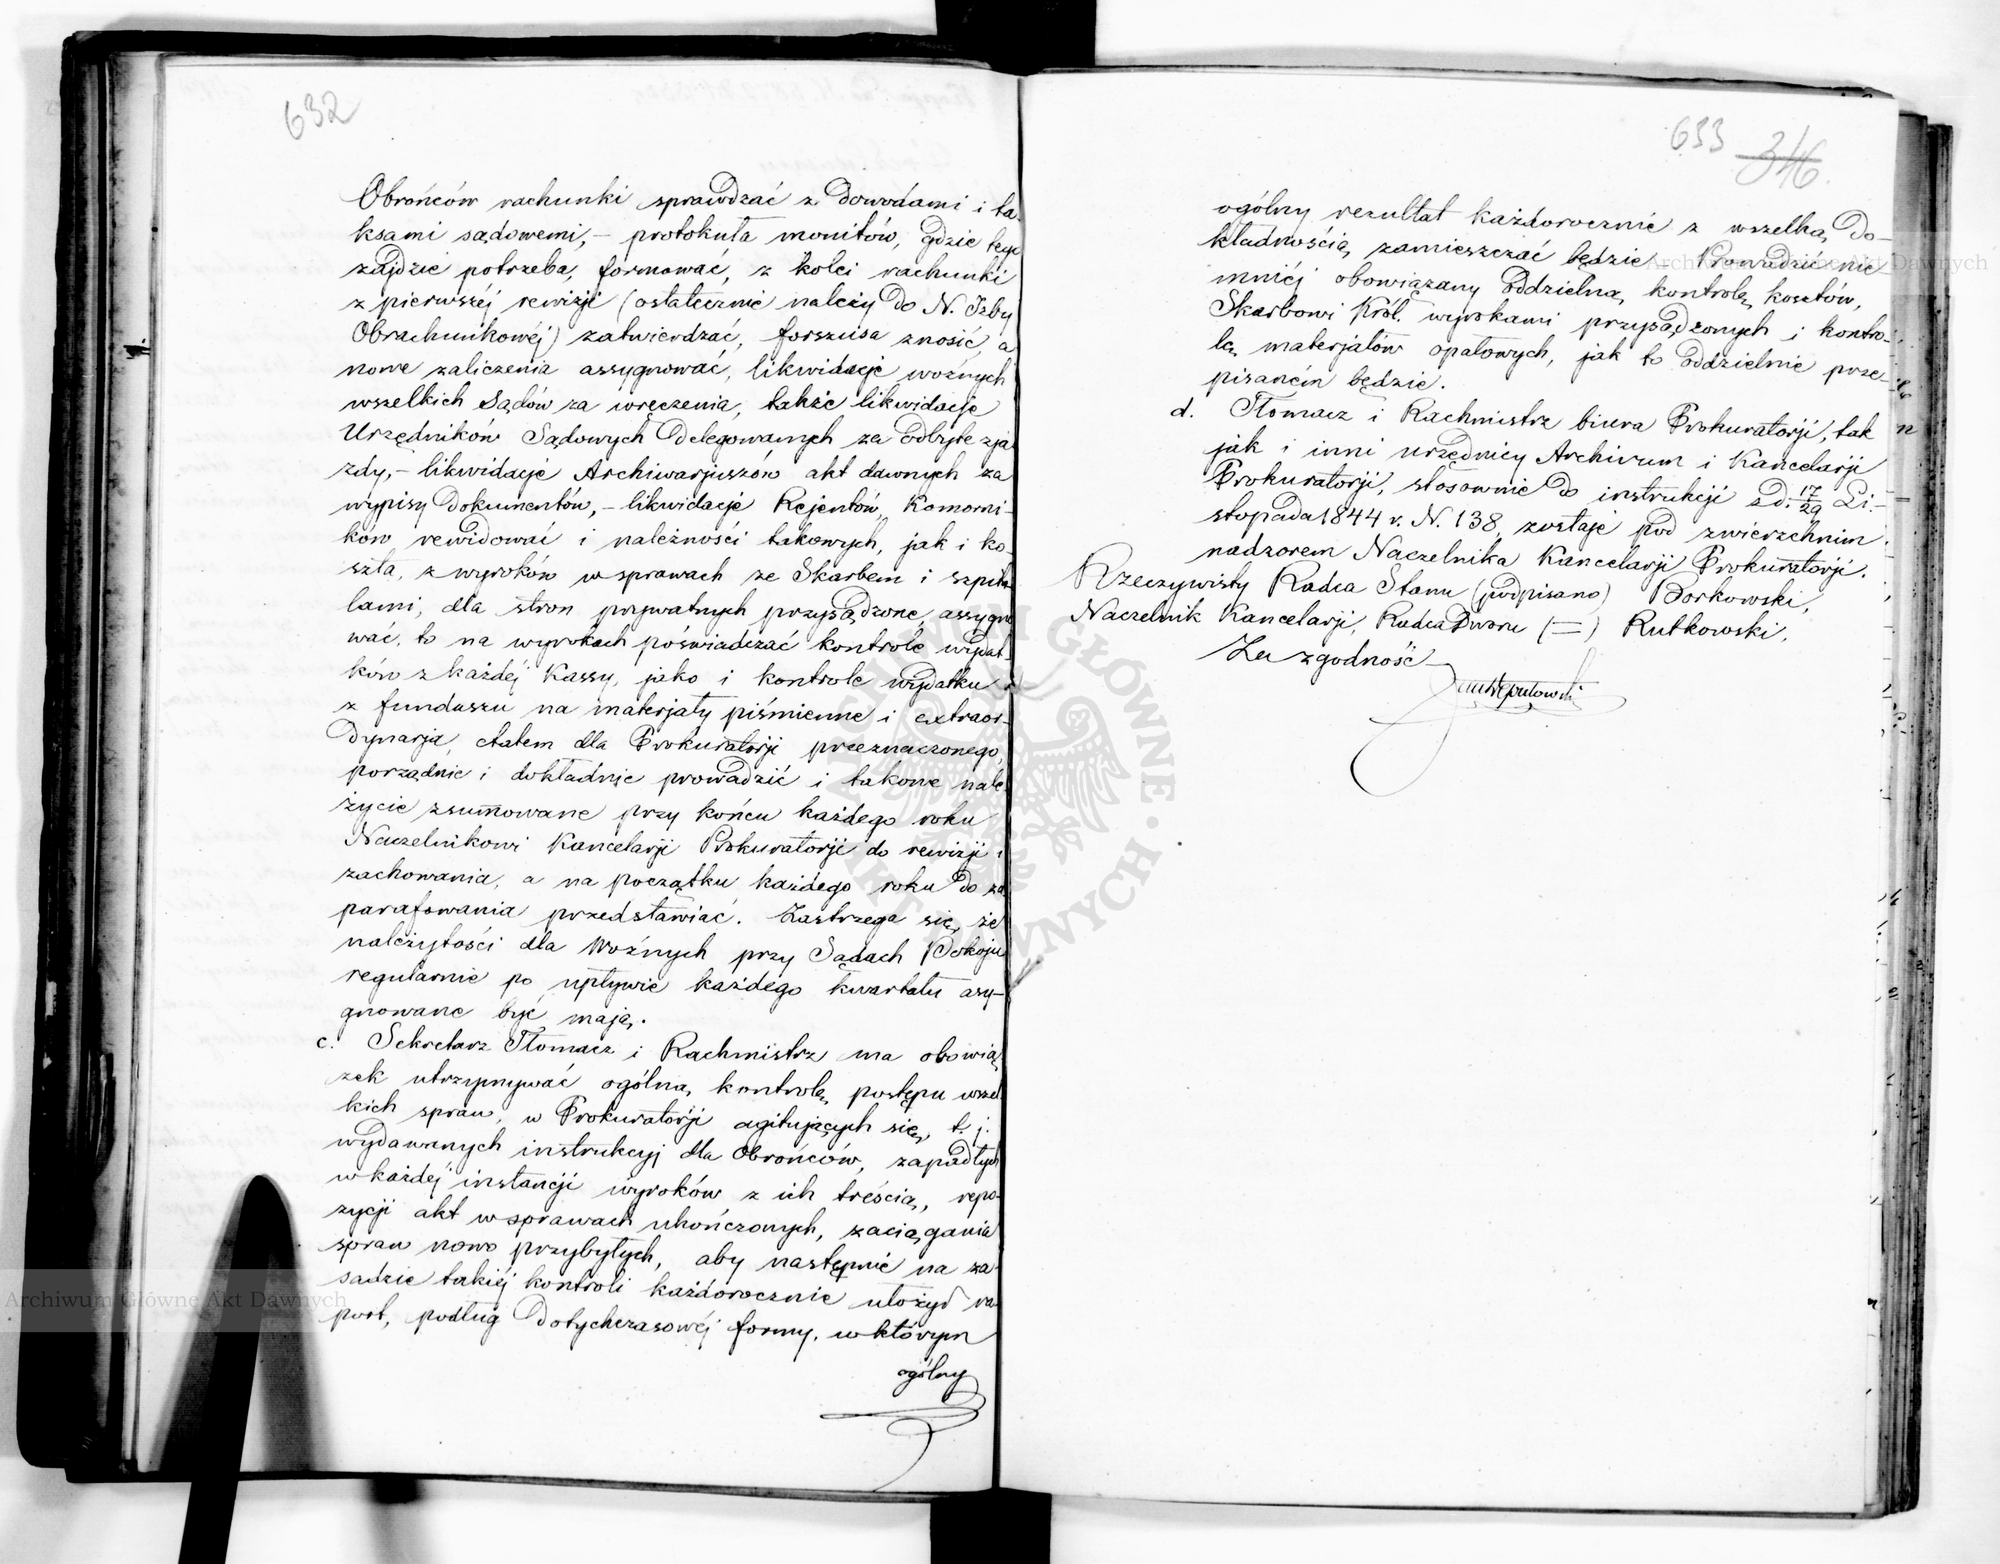 632
Obrońców rachunki sprawdzać z dowodami i ta-
ksami sądowemi, – protokuła monitów, gdzie tego
zajdzie potrzeba, formować, z kolei rachunki
z pierwszéj rewizji (ostatecznie należy do N. Izby
Obrachunkowéj) zatwierdzać, forszusa znosić, a
nowe zaliczenia assygnować, likwidacje woźnych
wszelkich Sądów za wręczenia, także likwidacje
Urzędników Sądowych delegowanych za odbyte zja
zdy, – likwidacje Archiwarjuszów akt dawnych za
wypisy dokumentów, – likwidacje Rejentów, Komorni-
ków rewidować i należności takowych, jak i ko-
szta, z wyroków w sprawach ze Skarbem i szpita
lami, dla stron prywatnych przysądzone, assygno
wać, to na wyrokach poświadczać kontrole wydat-
ków z każdéj Kassy, jako i kontrole wydatku
z funduszu na materjały piśmienne i extraor-
dynarja, etatem dla Prokuratorji przeznaczonego,
porządnie i dokładnie prowadzić i takowe nale-
życie zsumowane przy końcu każdego roku
Naczelnikowi Kancelarji Prokuratorji do rewizji i
zachowania, a na początku każdego roku do za
parafowania przedstawiać. Zastrzega się, że
należytości dla Woźnych przy Sądach Pokoju
regularnie po upływie każdego kwartału asy-
gnowane być mają.
c. Sekretarz Tłomacz i Rachmistrz ma obowią
zek utrzymywać ogólną kontrolę postępu wszel
kich spraw, w Prokuratorji agitujących się, t. j.
wydawanych instrukcyj dla Obrońców, zapadłych
w każdéj instancji wyroków z ich treścią, repo-
zycji akt w sprawach ukończonych, zaciągania
spraw nowo przybyłych, aby następnie na za-
sadzie takiéj kontroli każdorocznie ułożył ra-
port, podług dotychczasowéj formy, w którym
ogólny
633 346
ogólny rezultat każdorocznie z wszelką do-
kładnością zamieszczać będzie. Prowadzić nie
mniéj obowiązany oddzielną kontrolę kosztów,
Skarbowi Król. wyrokami przysądzonych i kontro-
lę materjałów opałowych, jak to oddzielnie prze-
pisaném będzie.
d. Tłomacz i Rachmistrz biura Prokuratorji, tak
jak i inni urzędnicy Archiwum i Kancelarji
Prokuratorji, stosownie do instrukcji z d. 17/29 Li-
stopada 1844 r. N. 138, zostaje pod zwierzchnim
nadzorem Naczelnika Kancelarji Prokuratorji.
Rzeczywisty Radca Stanu (podpisano) Borkowski,
Naczelnik Kancelarji, Radca Dworu (=) Rutkowski.
Za zgodność
Archiwum Główne Akt Dawnych
Archiwum Główne Akt Dawnych